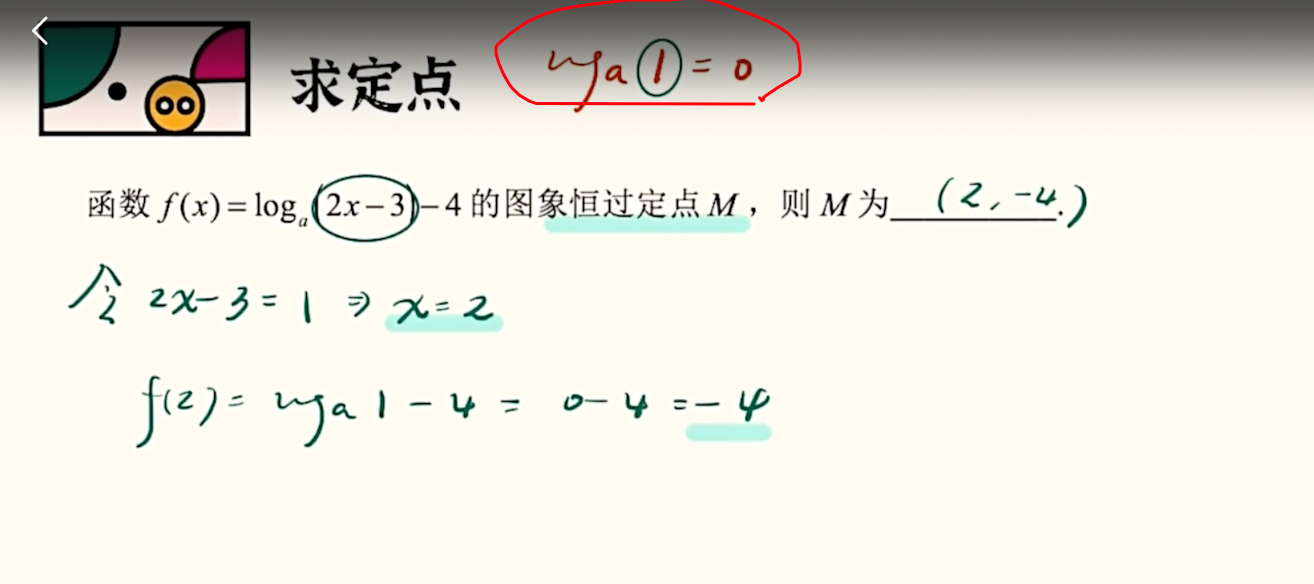 求定点 log_a 1 = 0
函数 f(x) = log_a(2x-3)-4 的图象恒过定点 M，则 M 为 (2, -4).
令 2x-3=1 ⇒ x=2
f(2)= log_a 1 - 4 = 0-4 = -4